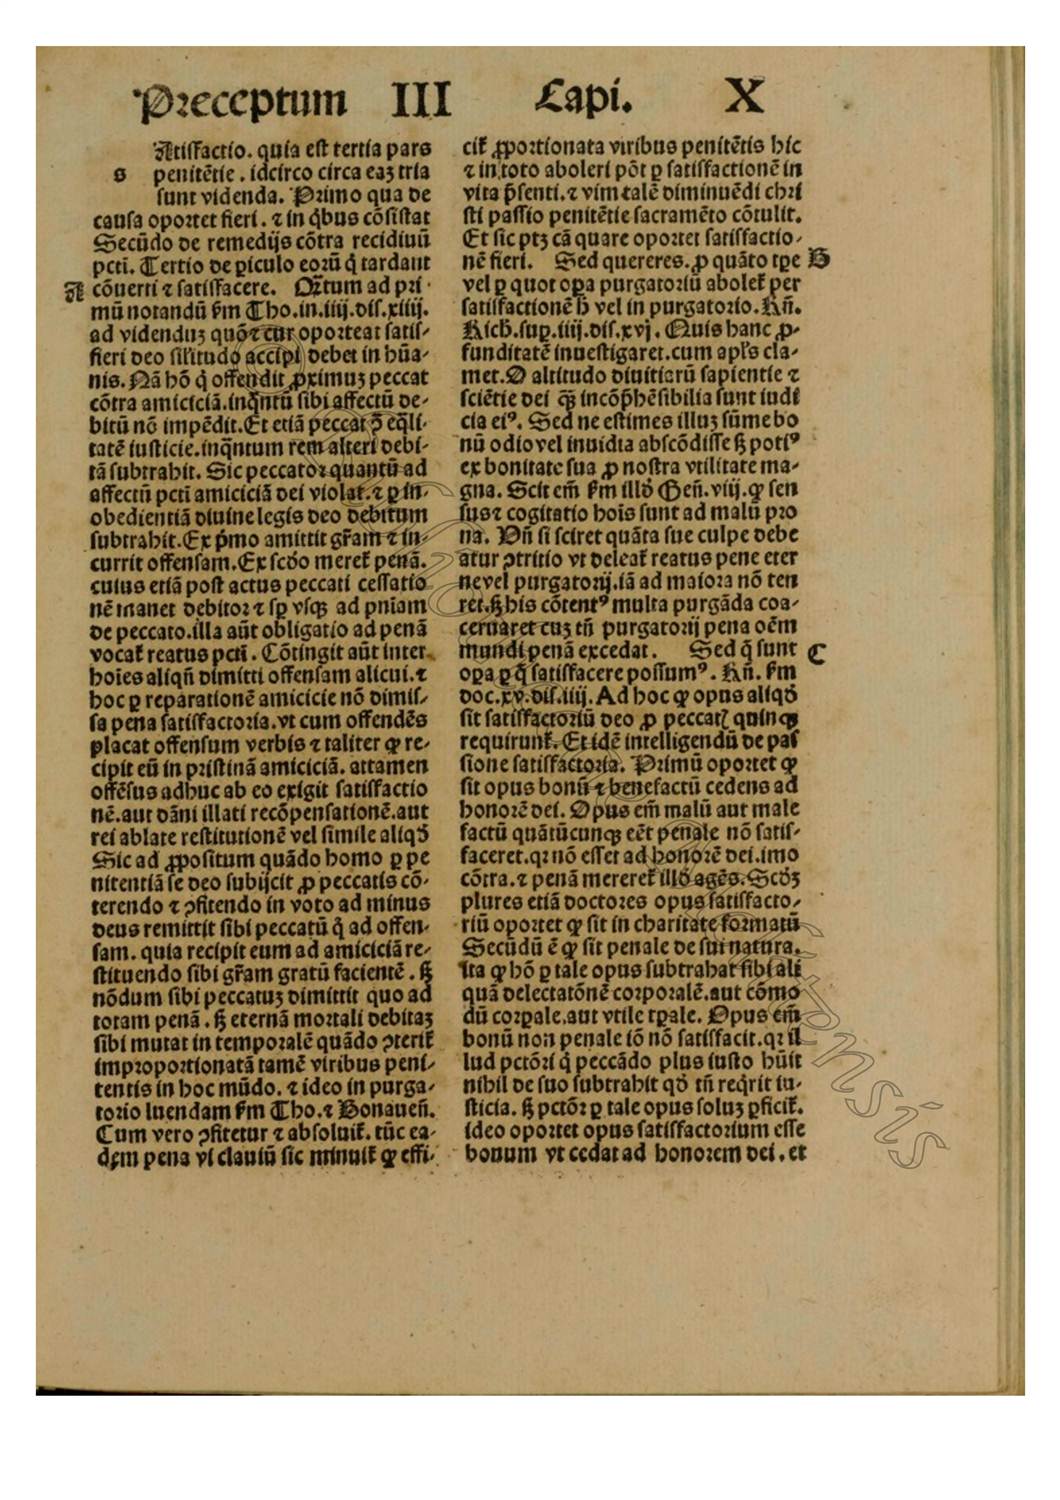 Preceptum III Capi. X
Atisfactio. quia est tertia pars
s penitētie . idcirco circa eaꝫ tria
sunt videnda. Primo qua de
causa oportet fieri . ⁊ in qͥbus cōsistat
Secūdo de remedijs cōtra recidiuū
pctī. Tertio de ꝑiculo eorū qͥ tardant
A cōuerti ⁊ satisfacere. Qꝫtum ad pri-
mū notandū ẜm Tho.in.iiij.dis.xiiij.
ad videnduꝫ quō ⁊ cur oporteat satis-
fieri deo silitudo accipi debet in hūa-
nis. Nā hō qͥ offendit ꝓximuꝫ peccat
cōtra amiciciā.inqͣntū sibi affectū de-
bitū nō impēdit. Et etiā peccat ꝯ̄ eqͣli-
tatē iusticie.inqͣntum rem alteri debi-
tā subtrahit. Sic peccator quantū ad
affectū pctī amiciciā dei violat.⁊ ꝑ in-
obedientiā diuine legis deo debitum
subtrahit. Ex pͥmo amittit gr̄am ⁊ in-
currit offensam. Ex scd̄o meret᷑ penā.
cuius etiā post actus peccati cessatio
nē manet debitor ⁊ sꝑ vsqꝫ ad pniam
de peccato.illa aūt obligatio ad penā
vocat᷑ reatus pctī. Cōtingit aūt inter
hoīes aliqn̄ dimitti offensam alicui.⁊
hoc ꝑ reparationē amicicie nō dimis-
sa pena satisfactoria.vt cum offendēs
placat offensum verbis ⁊ taliter ꝙ re-
cipit eū in pristinā amiciciā. attamen
offēsus adhuc ab eo exigit satisfactio
nē.aut dāni illati recōpensationē.aut
rei ablate restitutionē vel simile aliqd̄
Sic ad ꝓpositum quādo homo ꝑ pe
nitentiā se deo subijcit ꝓ peccatis cō-
terendo ⁊ ꝯfitendo in voto ad minus
deus remittit sibi peccatū qͣ̄ ad offen-
sam. quia recipit eum ad amiciciā re-
stituendo sibi gr̄am gratū facientē . sꝫ
nōdum sibi peccatuꝫ dimittit quo ad
totam penā . sꝫ eternā mortali debitaꝫ
sibi mutat in temporalē quādo ꝯterit᷑
improportionatā tamē viribus peni-
tentis in hoc mūdo. ⁊ ideo in purga-
torio luendam ẜm Tho.⁊ Bonaueñ.
Cum vero ꝯfitetur ⁊ absoluit᷑. tūc ea-
dem pena vi clauiū sic minuit᷑ ꝙ effi-
cit᷑ ꝓportionata viribus penitētis hic
⁊ in toto aboleri pōt ꝑ satisfactionē in
vita p̄senti.⁊ vim talē diminuēdi chri
sti passio penitētie sacramēto cōtulit.
Et sic ptꝫ cā quare oportet satisfactio-
nē fieri. Sed quereres.ꝓ quāto tꝑe B
vel ꝑ quot oꝑa purgatoriū abolet᷑ per
satisfactionē h̄ vel in purgatorio. Rñ.
Rich.suꝑ.iiij.dis.xvj. Quis hanc ꝓ-
funditatē inuestigaret.cum apls cla-
met. O altitudo diuitiarū sapientie ⁊
sciētie dei qꝫ̄ incōp̄hēsibilia sunt iudi
cia eiꝰ. Sed ne estimes illuꝫ sūme bo
nū odio vel inuidia abscōdisse sꝫ potiꝰ
ex bonitate sua ꝓ nostra vtilitate ma-
gna. Scit em̄ ẜm illd̄ Geñ.viij. ꝙ sen
sus ⁊ cogitatio hoīs sunt ad malū pro
na. Vn̄ si sciret quāta sue culpe debe
atur ꝯtritio vt deleat᷑ reatus pene eter
ne vel purgatorij.iā ad maiora nō ten
ret.sꝫ his cōtentꝰ multa purgāda coa-
ceruaret cuꝫ tn̄ purgatorij pena oēm
mundi penā excedat. Sed qͣ sunt C
oꝑa ꝑ qͣ satisfacere possumꝰ. Rñ. ẜm
doc.xv.dis.iiij. Ad hoc ꝙ opus aliqd̄
sit satisfactoriū deo ꝓ peccatꝭ quinqꝫ
requirunt᷑. Et idē intelligendū de pas
sione satisfactoria. Primū oportet ꝙ
sit opus bonū ⁊ benefactū cedens ad
honorē dei. Opus em̄ malū aut male
factū quātūcunqꝫ eēt penale nō satis-
faceret.qꝛ nō esset ad honorē dei.imo
cōtra.⁊ penā mereret᷑ illd̄ agēs. Scd̄ꝫ
plures etiā doctores opus satisfacto-
riū oportet ꝙ sit in charitate formatū
Secūdū ē ꝙ sit penale de sui natura.
ita ꝙ hō ꝑ tale opus subtrahat sibi ali
quā delectatōnē corporalē.aut cōmo
dū corꝑale.aut vtile tꝑale. Opus em̄
bonū non penale iō nō satisfacit.qꝛ il
lud pctōri qͥ peccādo plus iusto hūit
nihil de suo subtrahit qd̄ tn̄ reqͥrit iu-
sticia. sꝫ pctōꝛ ꝑ tale opus soluꝫ ꝑficit᷑.
ideo oportet opus satisfactorium esse
bonum vt cedat ad honorem dei . et